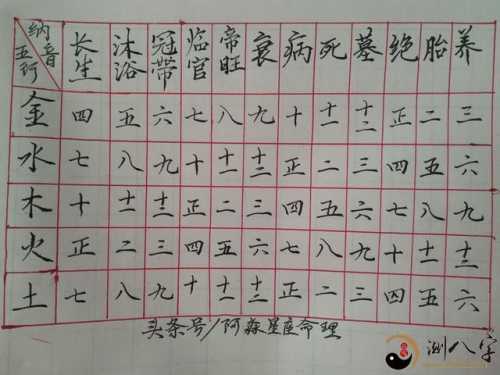 纳音五行 长生 沐浴 冠带 临官 帝旺 衰 病 死 墓 绝 胎 养
金 四 五 六 七 八 九 十 十一 十二 正 二 三
水 七 八 九 十 十一 十二 正 二 三 四 五 六
木 十 十一 十二 正 二 三 四 五 六 七 八 九
火 正 二 三 四 五 六 七 八 九 十 十一 十二
土 七 八 九 十 十一 十二 正 二 三 四 五 六
头条号/阿淼星座命理
测八字